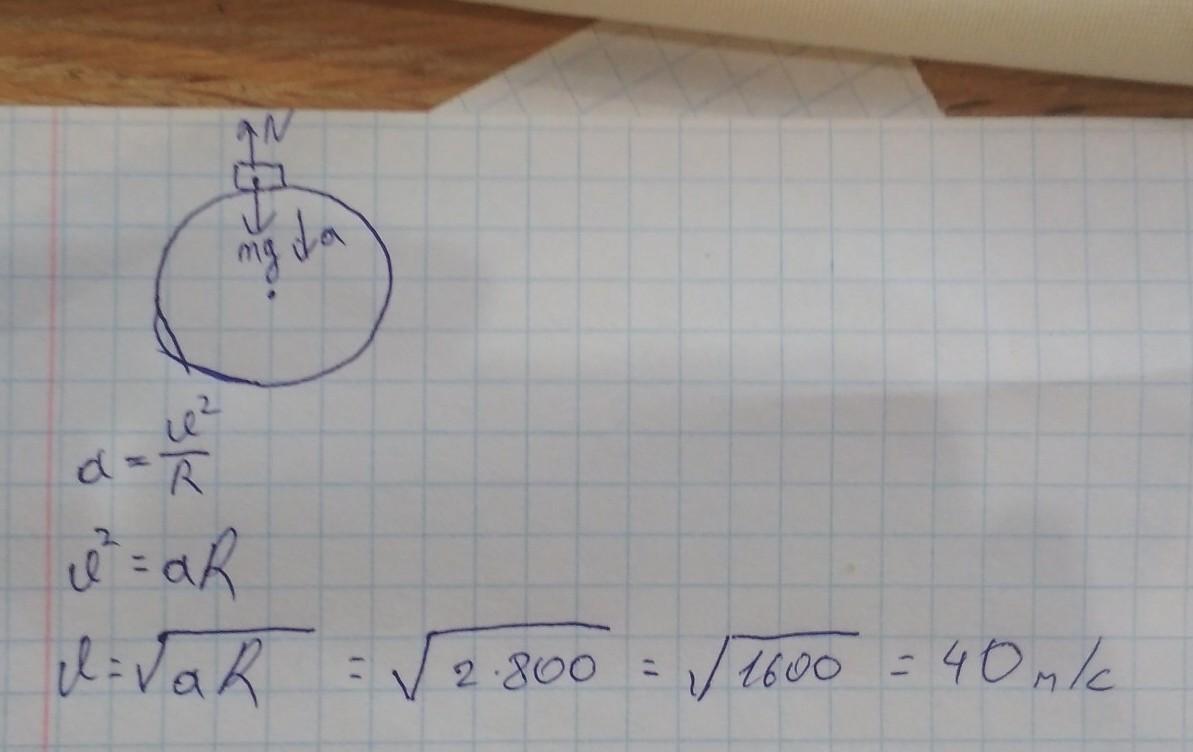 N
mg a
a = υ²/R
υ² = aR
υ = √aR = √2·800 = √1600 = 40 м/с